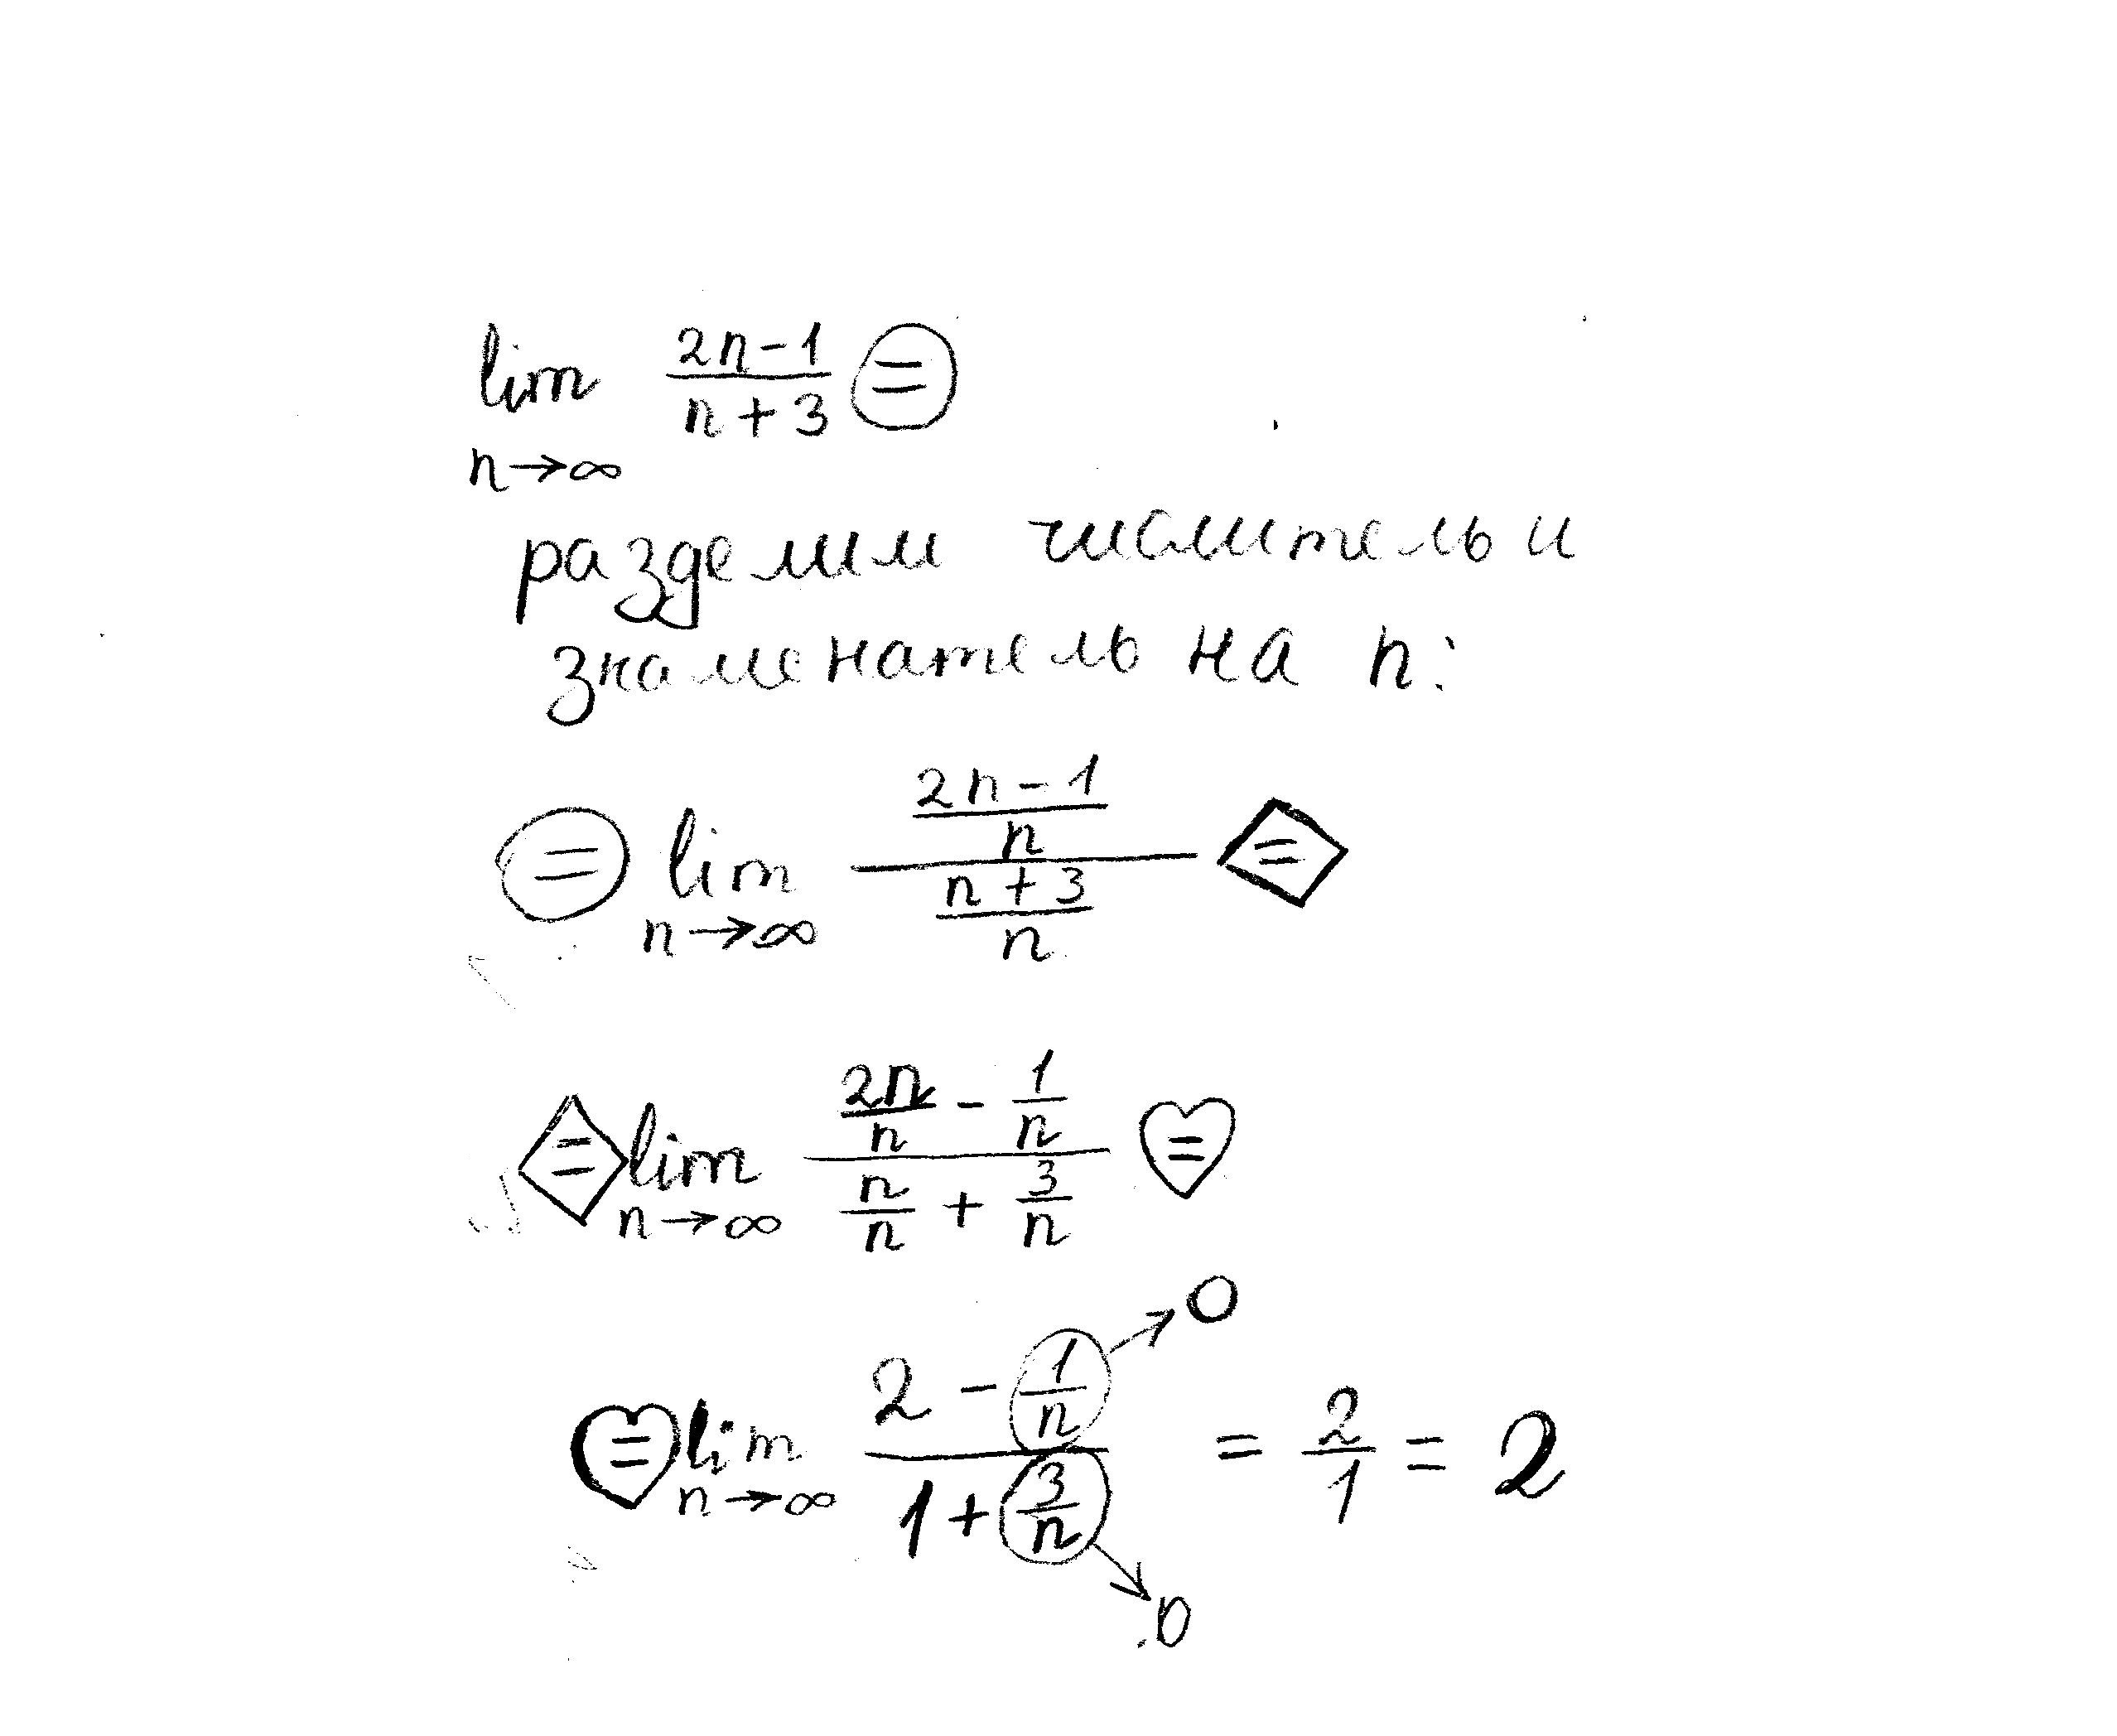 lim (2n-1)/(n+3) =
n→∞
разделим числитель и
знаменатель на n:
= lim ((2n-1)/n)/((n+3)/n) =
n→∞
= lim (2n/n - 1/n)/(n/n + 3/n) =
n→∞
0
= lim (2 - 1/n)/(1 + 3/n) = 2/1 = 2
n→∞
0